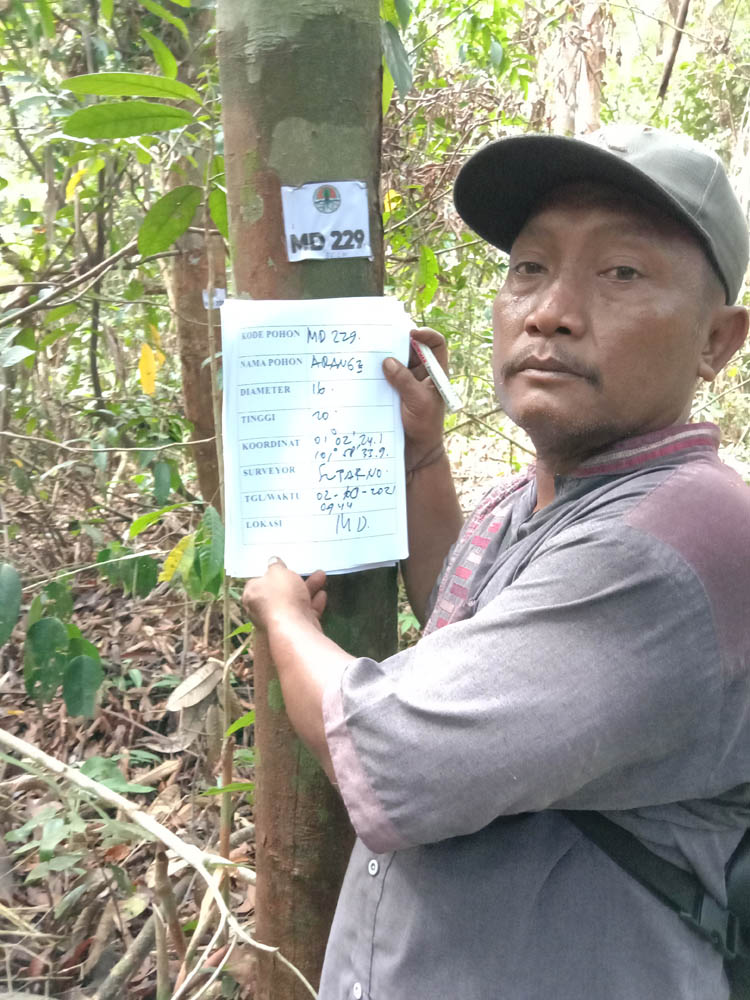 MD 229
KODE POHON MD 229.
NAMA POHON ARANG2
DIAMETER 16.
TINGGI 20.
KOORDINAT 01° 02' 24.1
101° 58' 33.9.
SURVEYOR SUTARNO.
TGL/WAKTU 02-10-2021
0944
LOKASI MD.